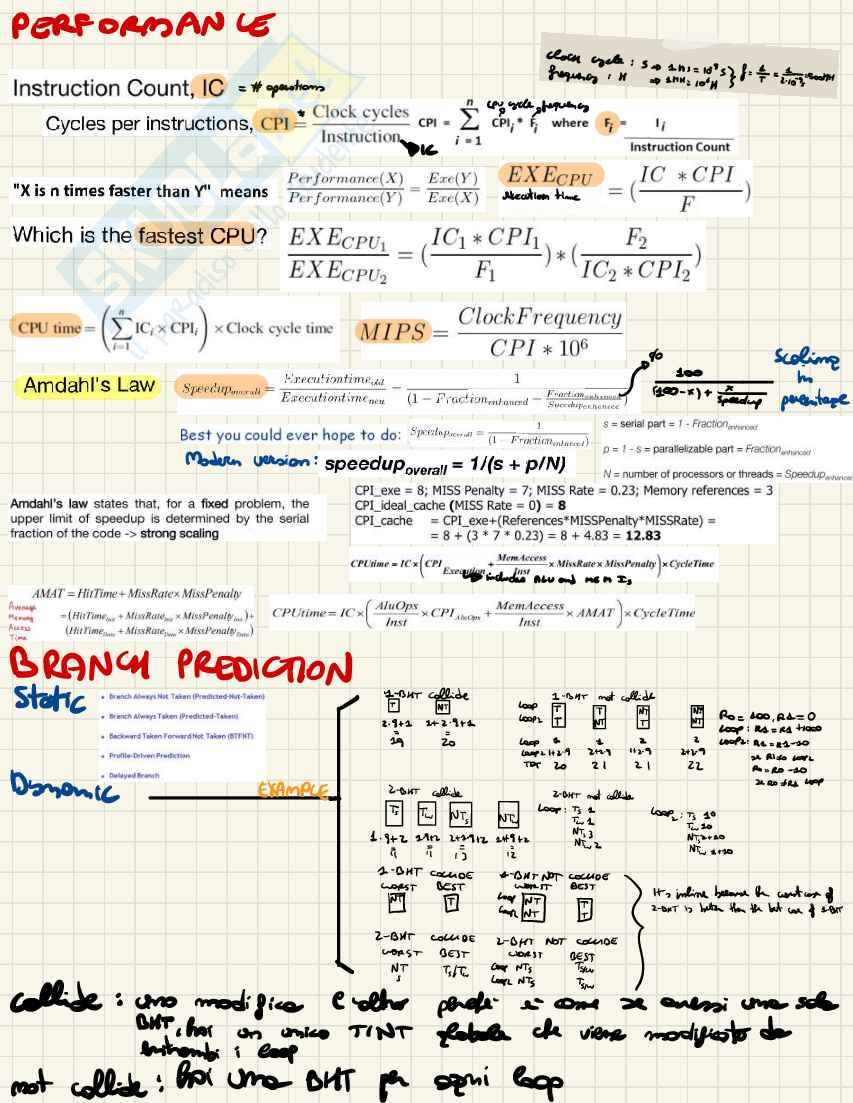 PERFORMANCE
clock cycle : S ⇒ 1 ns = 10⁻⁹ s
frequency : H ⇒ 1 MHz = 10⁶ H
f = 1/T =
Instruction Count, IC = # operations
Cycles per instructions, CPI = Clock cycles / Instruction
IC
CPI = Σ i = 1 n CPI_i * F_i where F_i = I_i / Instruction Count
cpu cycle frequency
"X is n times faster than Y" means Performance(X) / Performance(Y) = Exe(Y) / Exe(X)
EXE_CPU = (IC * CPI / F)
execution time
Which is the fastest CPU? EXE_CPU1 / EXE_CPU2 = (IC1 * CPI1 / F1) * (F2 / IC2 * CPI2)
CPU time = (Σ i=1 n IC_i × CPI_i) × Clock cycle time
MIPS = ClockFrequency / CPI * 10⁶
Amdahl's Law
Speedup_overall = Executiontime_old / Executiontime_new = 1 / (1 − Fraction_enhanced − Fraction_enhanced / Speedup_enhanced)
% 100 / (100-x) + x / speedup
Scaling in percentage
Best you could ever hope to do: Speedup_overall = 1 / (1 − Fraction_enhanced)
Modern version: speedup_overall = 1/(s + p/N)
s = serial part = 1 - Fraction_enhanced
p = 1 - s = parallelizable part = Fraction_enhanced
N = number of processors or threads = Speedup_enhanced
Amdahl's law states that, for a fixed problem, the
upper limit of speedup is determined by the serial
fraction of the code -> strong scaling
CPI_exe = 8; MISS Penalty = 7; MISS Rate = 0.23; Memory references = 3
CPI_ideal_cache (MISS Rate = 0) = 8
CPI_cache = CPI_exe+(References*MISSPenalty*MISSRate) =
= 8 + (3 * 7 * 0.23) = 8 + 4.83 = 12.83
CPUtime = IC × (CPI_Execution + MemAccess / Inst × MissRate × MissPenalty) × CycleTime
includes ALU and MEM Is
AMAT = HitTime + MissRate × MissPenalty
= (HitTime_Inst + MissRate_Inst × MissPenalty_Inst) +
(HitTime_Data + MissRate_Data × MissPenalty_Data)
Average
Memory
Access
Time
CPUtime = IC × (AluOps / Inst × CPI_AluOps + MemAccess / Inst × AMAT) × CycleTime
BRANCH PREDICTION
Static
• Branch Always Not Taken (Predicted-Not-Taken)
• Branch Always Taken (Predicted-Taken)
• Backward Taken Forward Not Taken (BTFNT)
• Profile-Driven Prediction
• Delayed Branch
Dynamic
EXAMPLE
1-BHT collide
T NT
2·9+1 1+2·9+1
= =
19 20
1-BHT not collide
LOOP T T NT NT
LOOP2 T NT T NT
LOOP 1 1 2 2
LOOP2 1+2·9 2+2·9 1+2·9 2+2·9
TOT 20 21 21 22
R0 = 100, R1 = 0
LOOP : R1 = R1 + 1000
LOOP2: R1 = R1 - 10
se R1≠0 LOOP2
R0 = R0 - 10
se R0≠0 LOOP
2-BHT collide
Ts Tw NTs NTw
1·9+2 1·9+2 2+1·9+2 1+9+2
= = = =
11 11 13 12
2-BHT not collide
LOOP : Ts 1
Tw 1
NTs 3
NTw 2
LOOP2 : Ts 10
Tw 10
NTs 2+10
NTw 1+10
1-BHT COLLIDE
WORST BEST
NT T
1-BHT NOT COLLIDE
WORST BEST
LOOP NT T
LOOP2 NT T
2-BHT COLLIDE
WORST BEST
NTs Ts/Tw
2-BHT NOT COLLIDE
WORST BEST
LOOP NTs Ts/w
LOOP2 NTs Ts/w
It's inline because the worst case of
2-BHT is better than the best case of 1-BHT
collide : uno modifica l'altro perché è come se avessi una sola
BHT, hai un unico T/NT globale che viene modificato da
entrambi i loop
not collide : hai una BHT per ogni loop